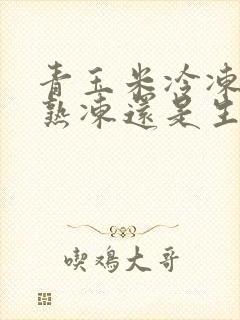 青玉米冷凍
熟凍還是生
喫鸡大哥